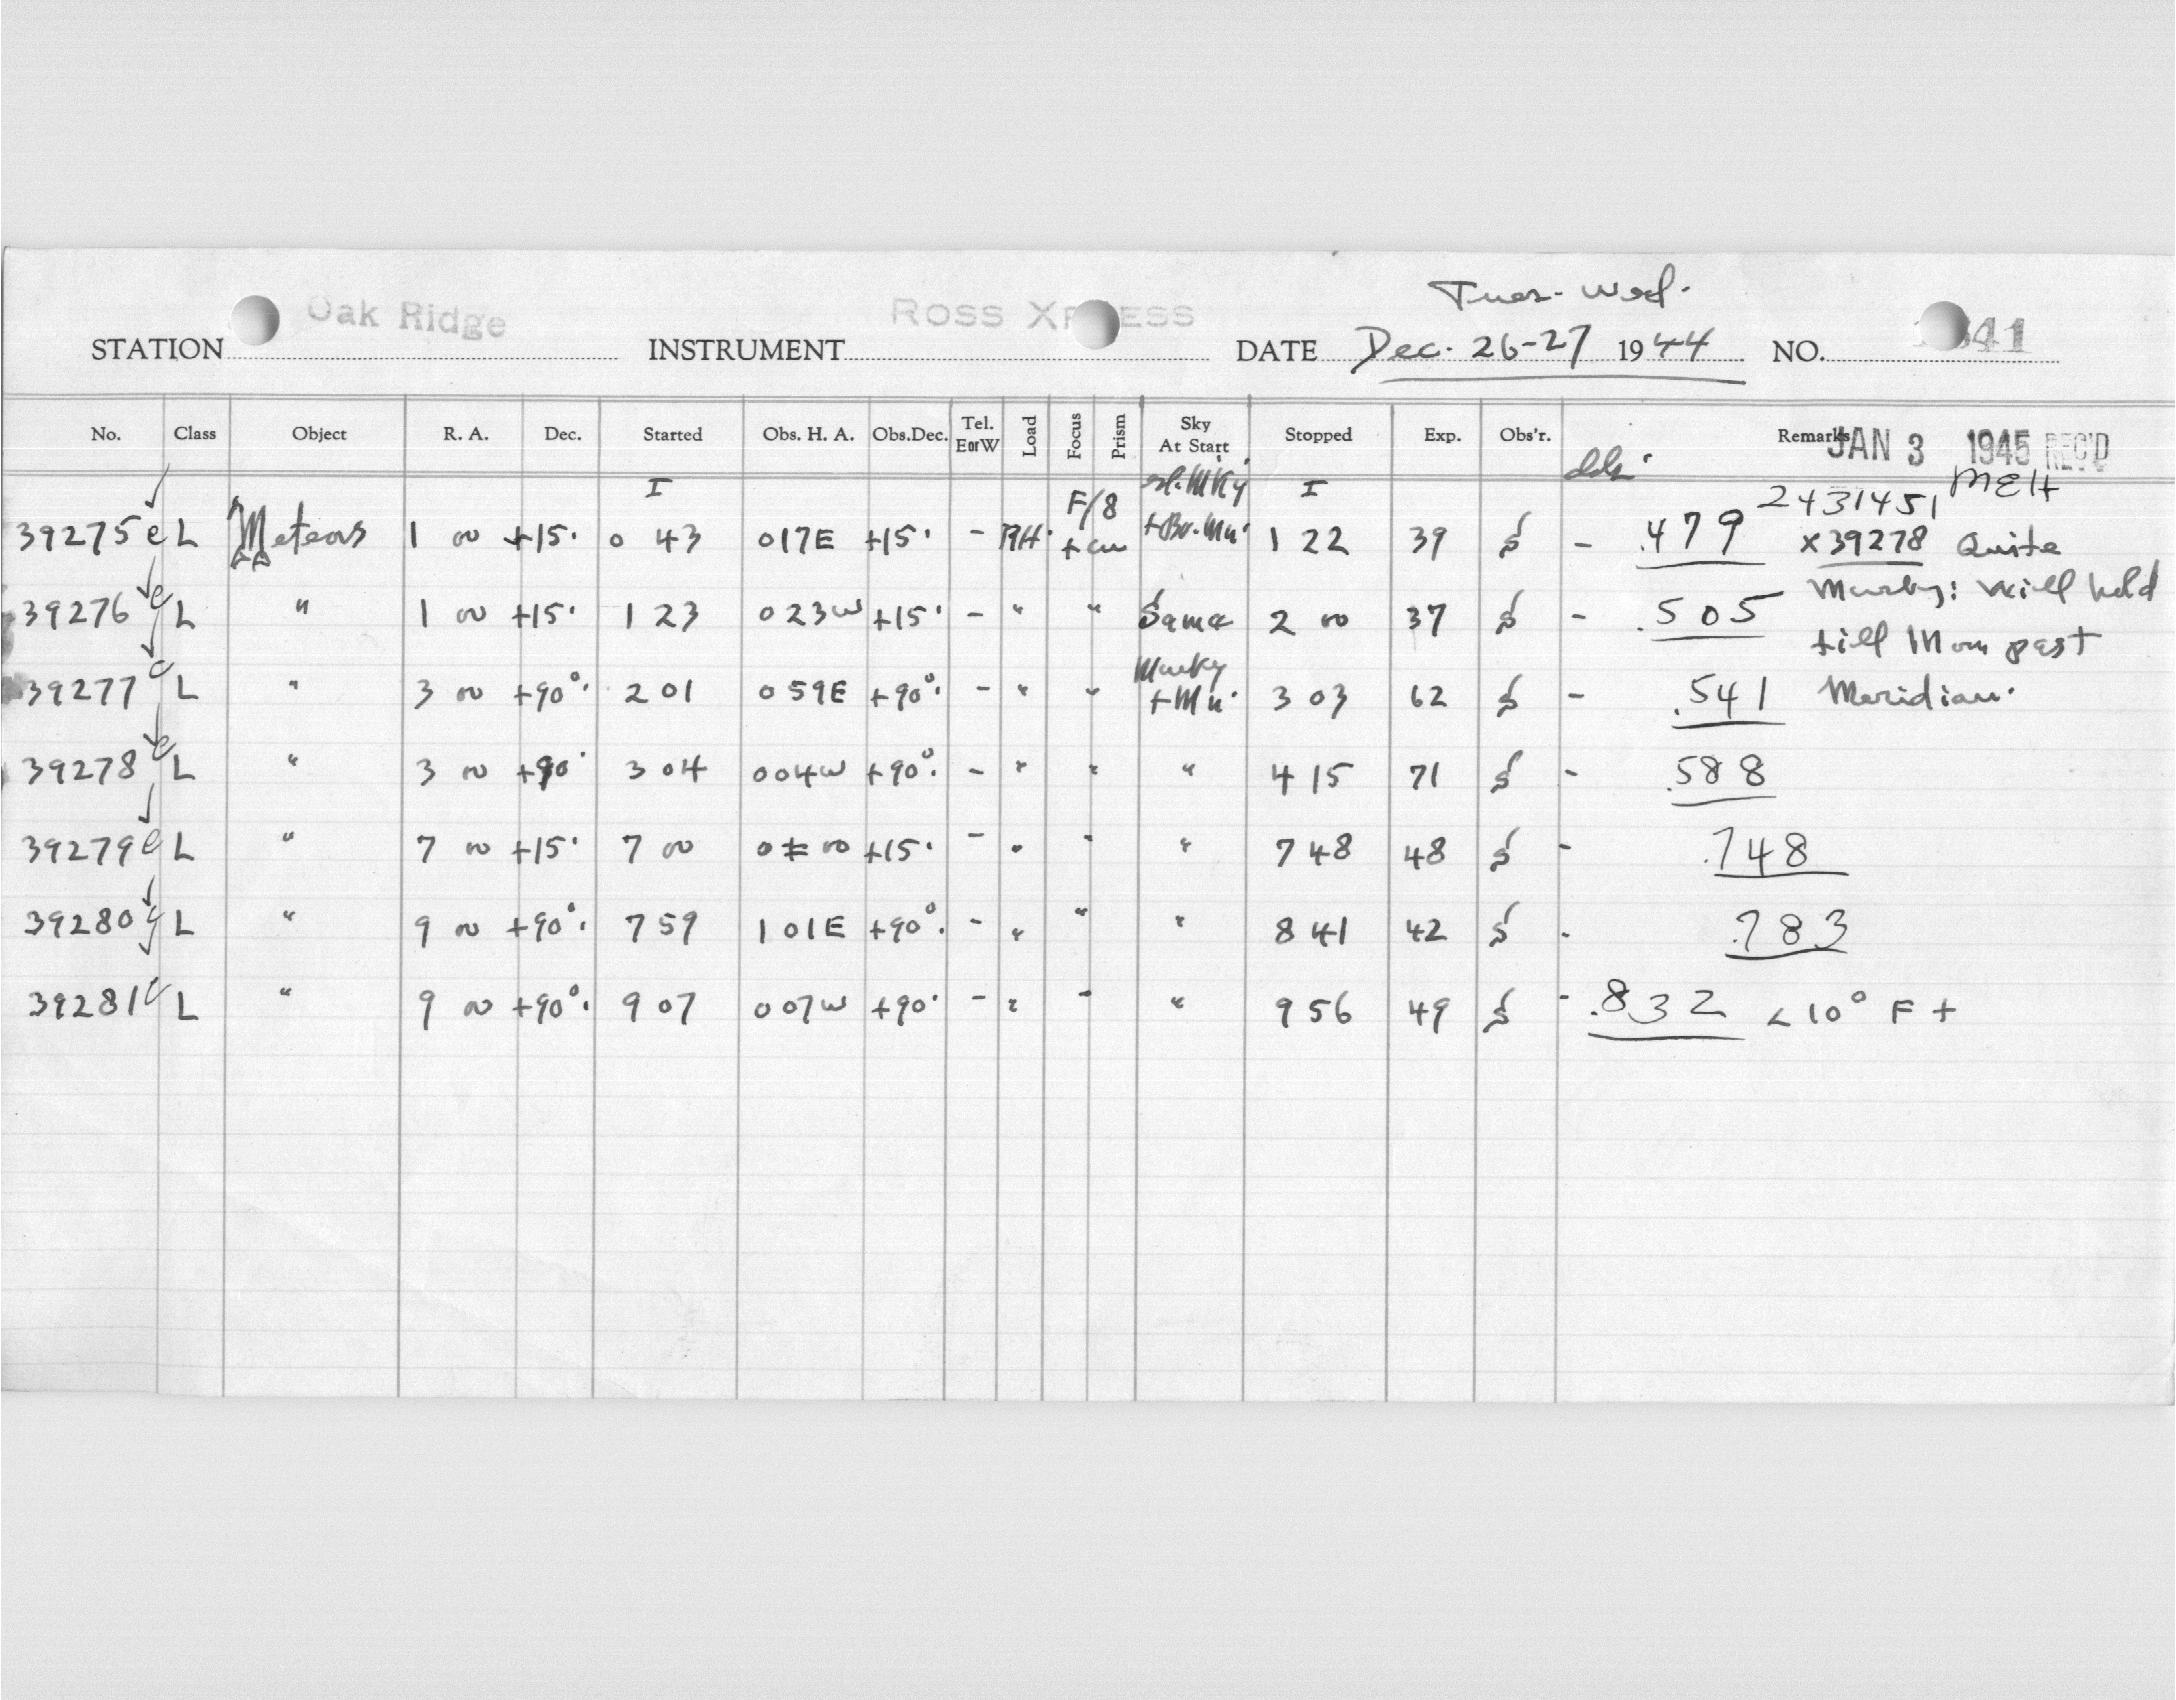 Tues- Wed.
Oak Ridge ROSS ESS
STATION INSTRUMENT DATE Dec. 26-27 1944 NO. 41
No. Class Object R. A. Dec. Started Obs. H. A. Obs.Dec. Tel. EorW Load Focus Prism Sky At Start Stopped Exp. Obs'r. Remarks
JAN 3 1945 REC'D
I sl. Mky I MEH
39275 e L Meteors 1 00 +15. 0 43 017E +15. - RH. F/8 + cw + Br. Mn. 1 22 39 S - .479 2431451
x39278 Quite
39276 e L " 1 00 +15. 1 23 023W +15. - " " Same 2 00 37 S - .505 Murky: Will hold
till Moon past
39277 e L " 3 00 +90°. 2 01 059E +90°. - " " Murky + Mn. 3 03 62 S - .541 Meridian.
39278 e L " 3 00 +90. 3 04 004W +90°. - " " " 4 15 71 S - .588
39279 e L " 7 00 +15. 7 00 0 00 +15. - " " " 7 48 48 S - .748
39280 g L " 9 00 +90°. 7 59 1 01E +90°. - " " " 8 41 42 S - .783
39281 e L " 9 00 +90°. 9 07 007W +90. - " " " 9 56 49 S - .832 < 10° F +